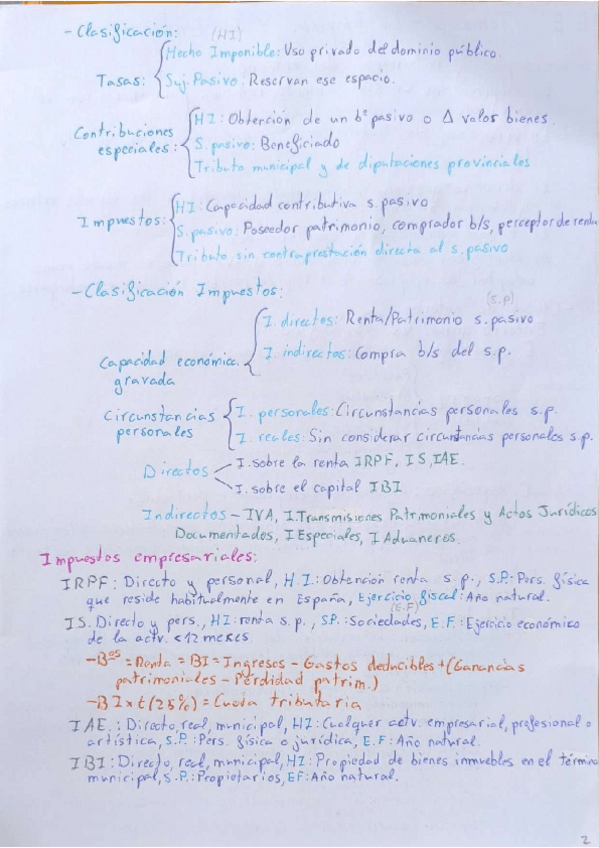 - Clasificación: (HI)
Hecho Imponible: Uso privado del dominio público.
Tasas: Suj. Pasivo: Reservan ese espacio.
HI: Obtención de un bº pasivo o Δ valos bienes
Contribuciones especiales: S. pasivo: Beneficiado
Tributo municipal y de diputaciones provinciales
HI: Capacidad contributiva s. pasivo
Impuestos: S. pasivo: Poseedor patrimonio, comprador b/s, perceptor de renta
Tributo sin contraprestación directa al s. pasivo
- Clasificación Impuestos:
(s.p)
I. directos: Renta/Patrimonio s. pasivo
I. indirectos: Compra b/s del s.p.
Capacidad económica gravada
Circunstancias personales
I. personales: Circunstancias personales s.p.
I. reales: Sin considerar circunstancias personales s.p.
Directos
I. sobre la renta IRPF, IS, IAE.
I. sobre el capital IBI
Indirectos - IVA, I. Transmisiones Patrimoniales y Actos Jurídicos
Documentados, I Especiales, I Aduaneros.
Impuestos empresariales:
IRPF: Directo y personal, H.I.: Obtención renta s.p., S.P.: Pers. física
que reside habitualmente en España, Ejercicio fiscal: Año natural.
(E.F)
IS. Directo y pers., HI: renta s.p., S.P.: Sociedades, E.F.: Ejercicio económico
de la actv. <12 meses
- Bºs = Renta = BI = Ingresos - Gastos deducibles + (Ganancias
patrimoniales - Pérdidad patrim.)
- BI x t (25%) = Cuota tributaria
IAE.: Directo, real, municipal, HI: Cualquer actv. empresarial, profesional o
artística, S.P.: Pers. física o jurídica, E.F: Año natural.
IBI: Directo, real, municipal, HI: Propiedad de bienes inmuebles en el término
municipal, S.P.: Propietarios, EF: Año natural.
2